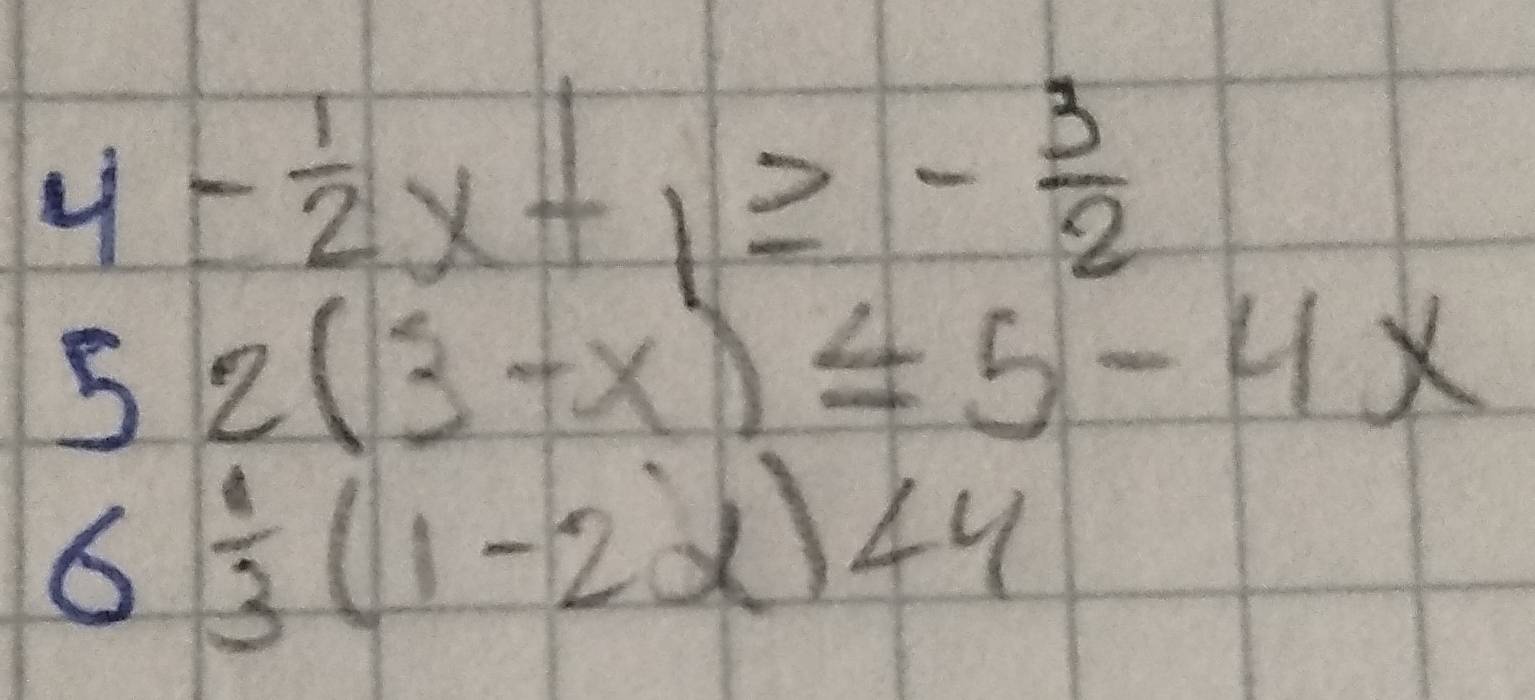 4 -1/2 x + 1 ≥ - 3/2
5 2(3-x) ≤ 5-4x
6 1/3 (1-2x) <4